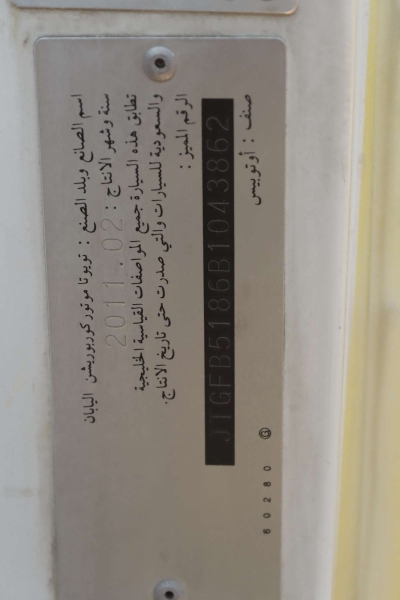 اسم الصانع وبلد الصنع : تويوتا موتور كوربوريشن اليابان
سنة وشهر الانتاج : 2011.02
تطابق هذه السيارة جميع المواصفات القياسية الخليجية
والسعودية للسيارات والتي صدرت حتى تاريخ الانتاج.
الرقم المميز :
JTGFB5186B1043862
صنف : أوتوبيس
60280 G